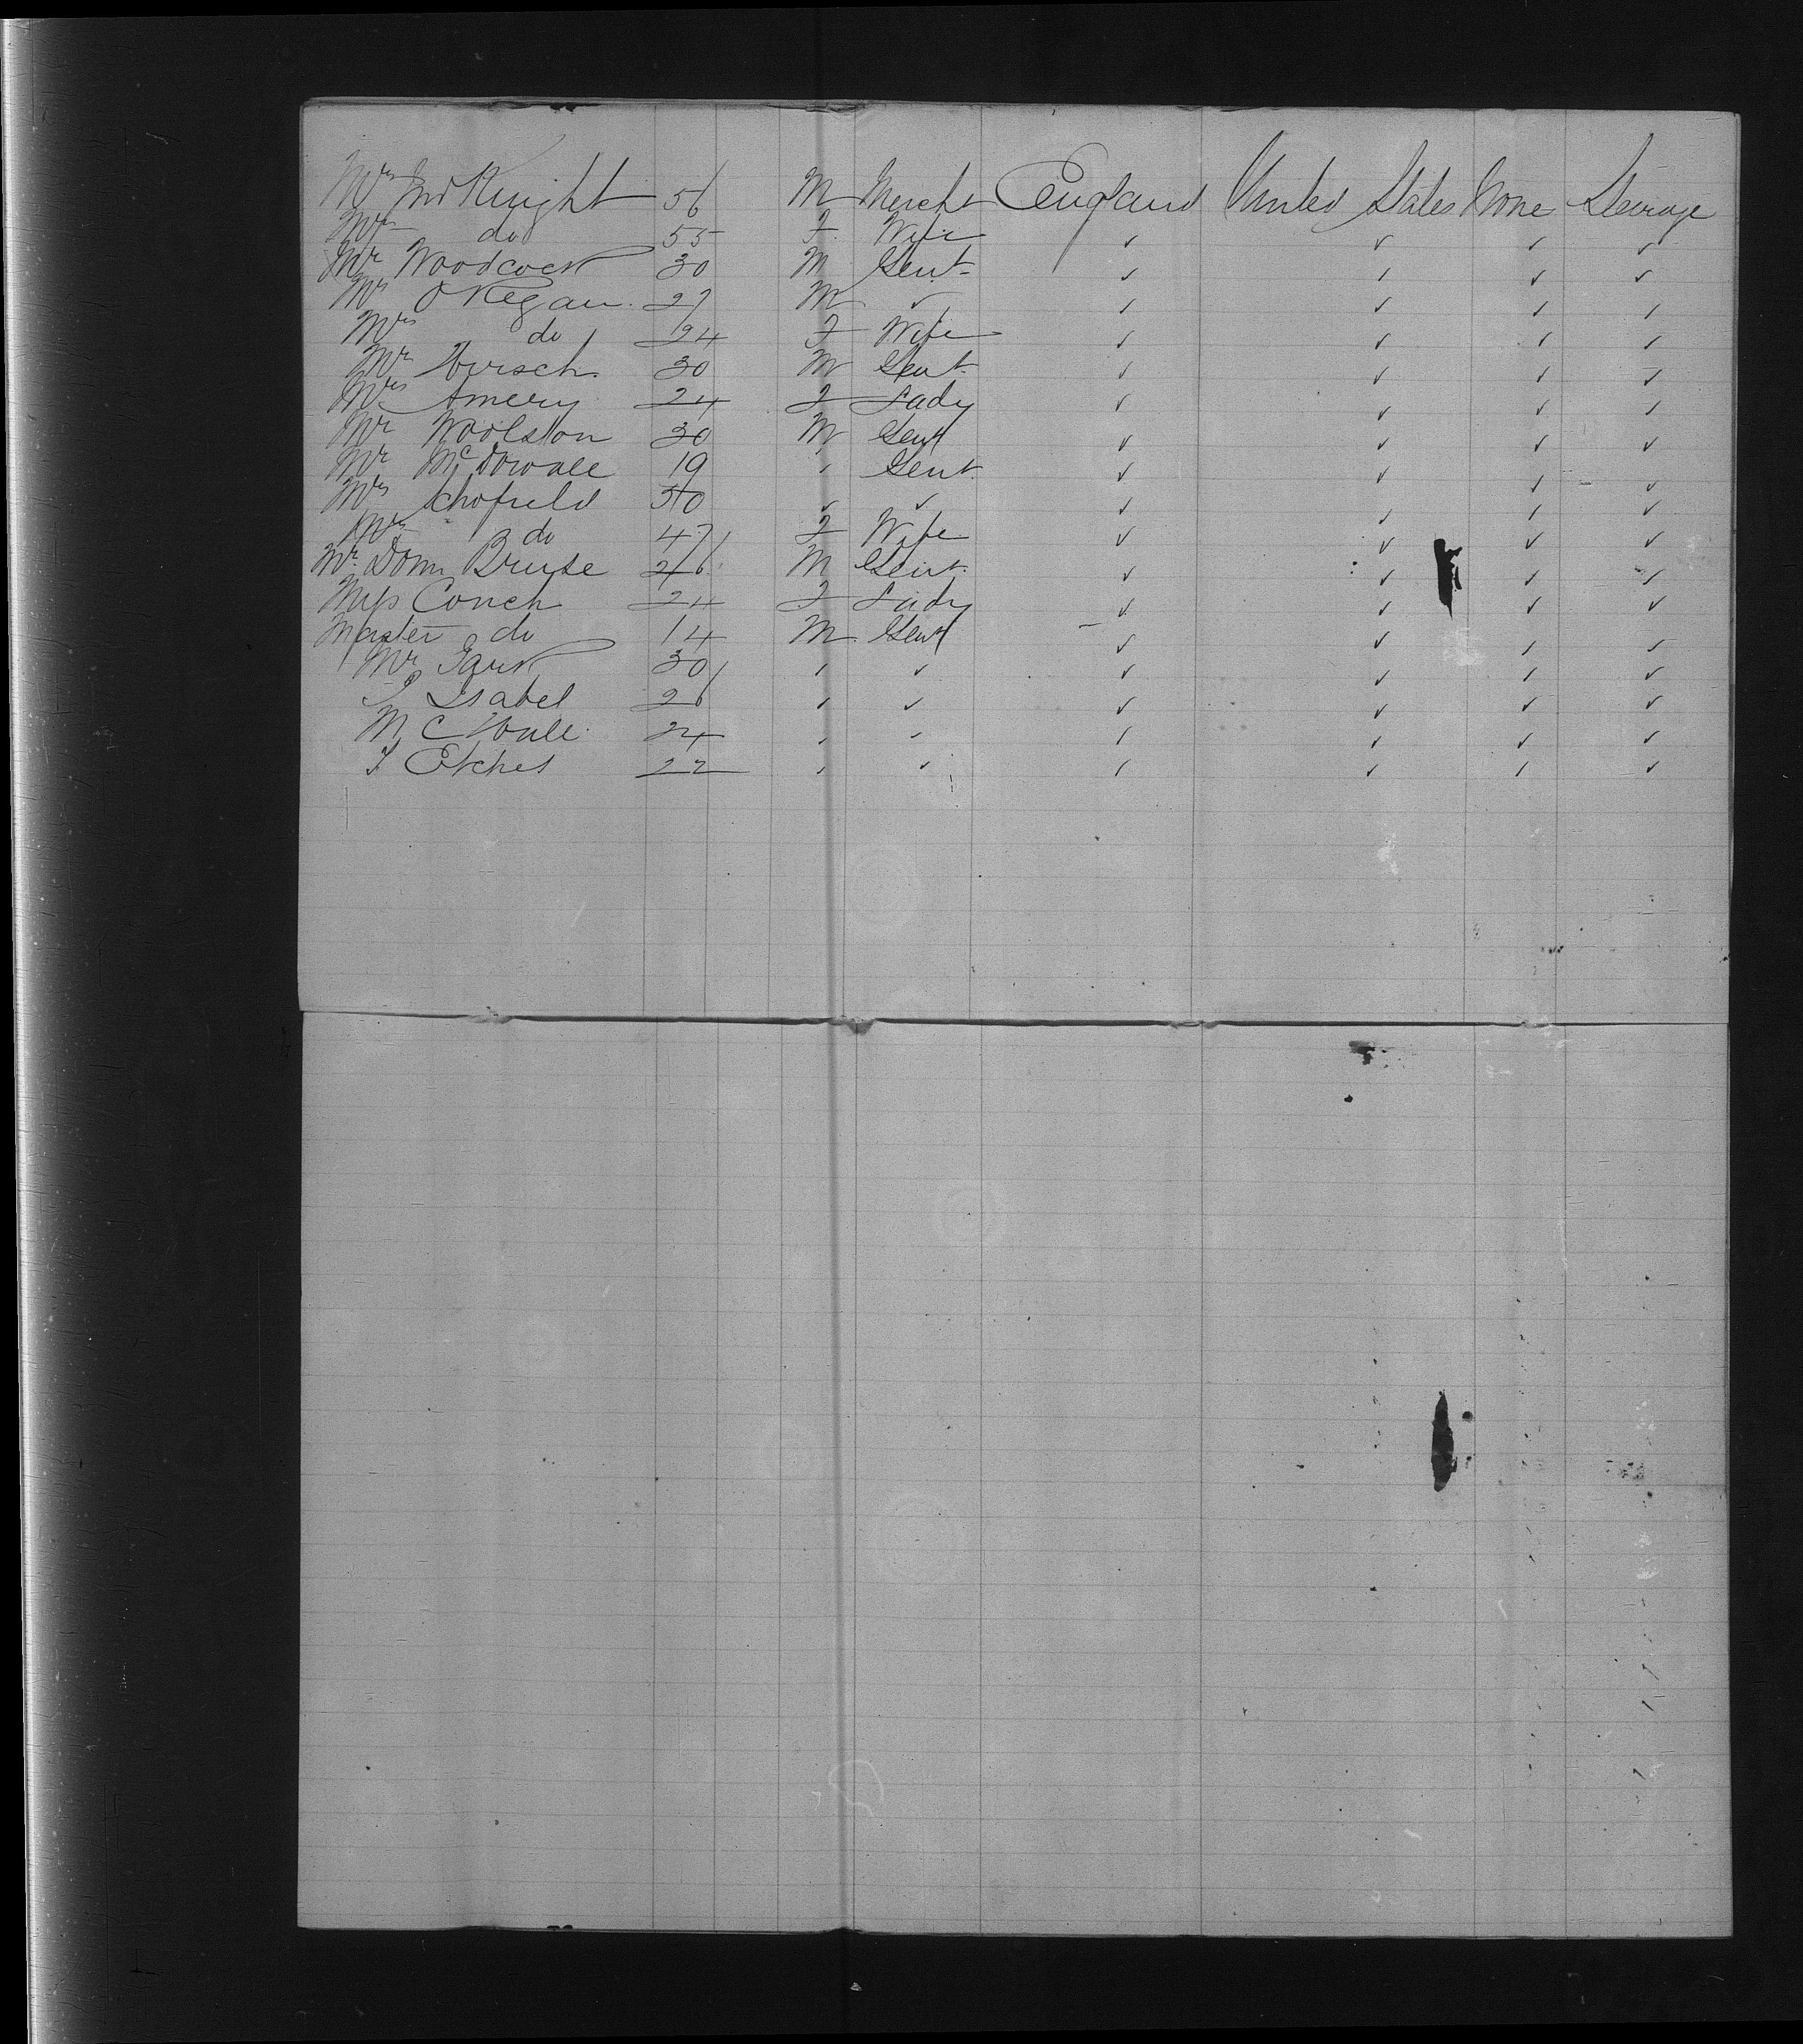 Mr Knight 56 M Mercht England United States None Steerage
Mrs do 55 F Wife ✓ ✓ ✓ ✓
Mr Woodcock 30 M Gent ✓ ✓ ✓ ✓
Mr O'Regan 27 M ✓ ✓ ✓ ✓ ✓
Mrs do 24 F Wife ✓ ✓ ✓ ✓
Mr Hirsch 30 M Gent ✓ ✓ ✓ ✓
Mrs Amery 24 F Lady ✓ ✓ ✓ ✓
Mr Woolston 30 M Gent ✓ ✓ ✓ ✓
Mr 19 ✓ Gent ✓ ✓ ✓ ✓
Mr Schofield 50 ✓ ✓ ✓ ✓ ✓ ✓
Mrs do 47 F Wife ✓ ✓ ✓ ✓
Mr Donn 26 M Gent ✓ ✓ ✓ ✓
Miss Couch 24 F Lady ✓ ✓ ✓ ✓
Master do 14 M Gent ✓ ✓ ✓ ✓
Mr 30 ✓ ✓ ✓ ✓ ✓ ✓
Isabel 26 ✓ ✓ ✓ ✓ ✓ ✓
M C 24 ✓ ✓ ✓ ✓ ✓ ✓
Etches 22 ✓ ✓ ✓ ✓ ✓ ✓